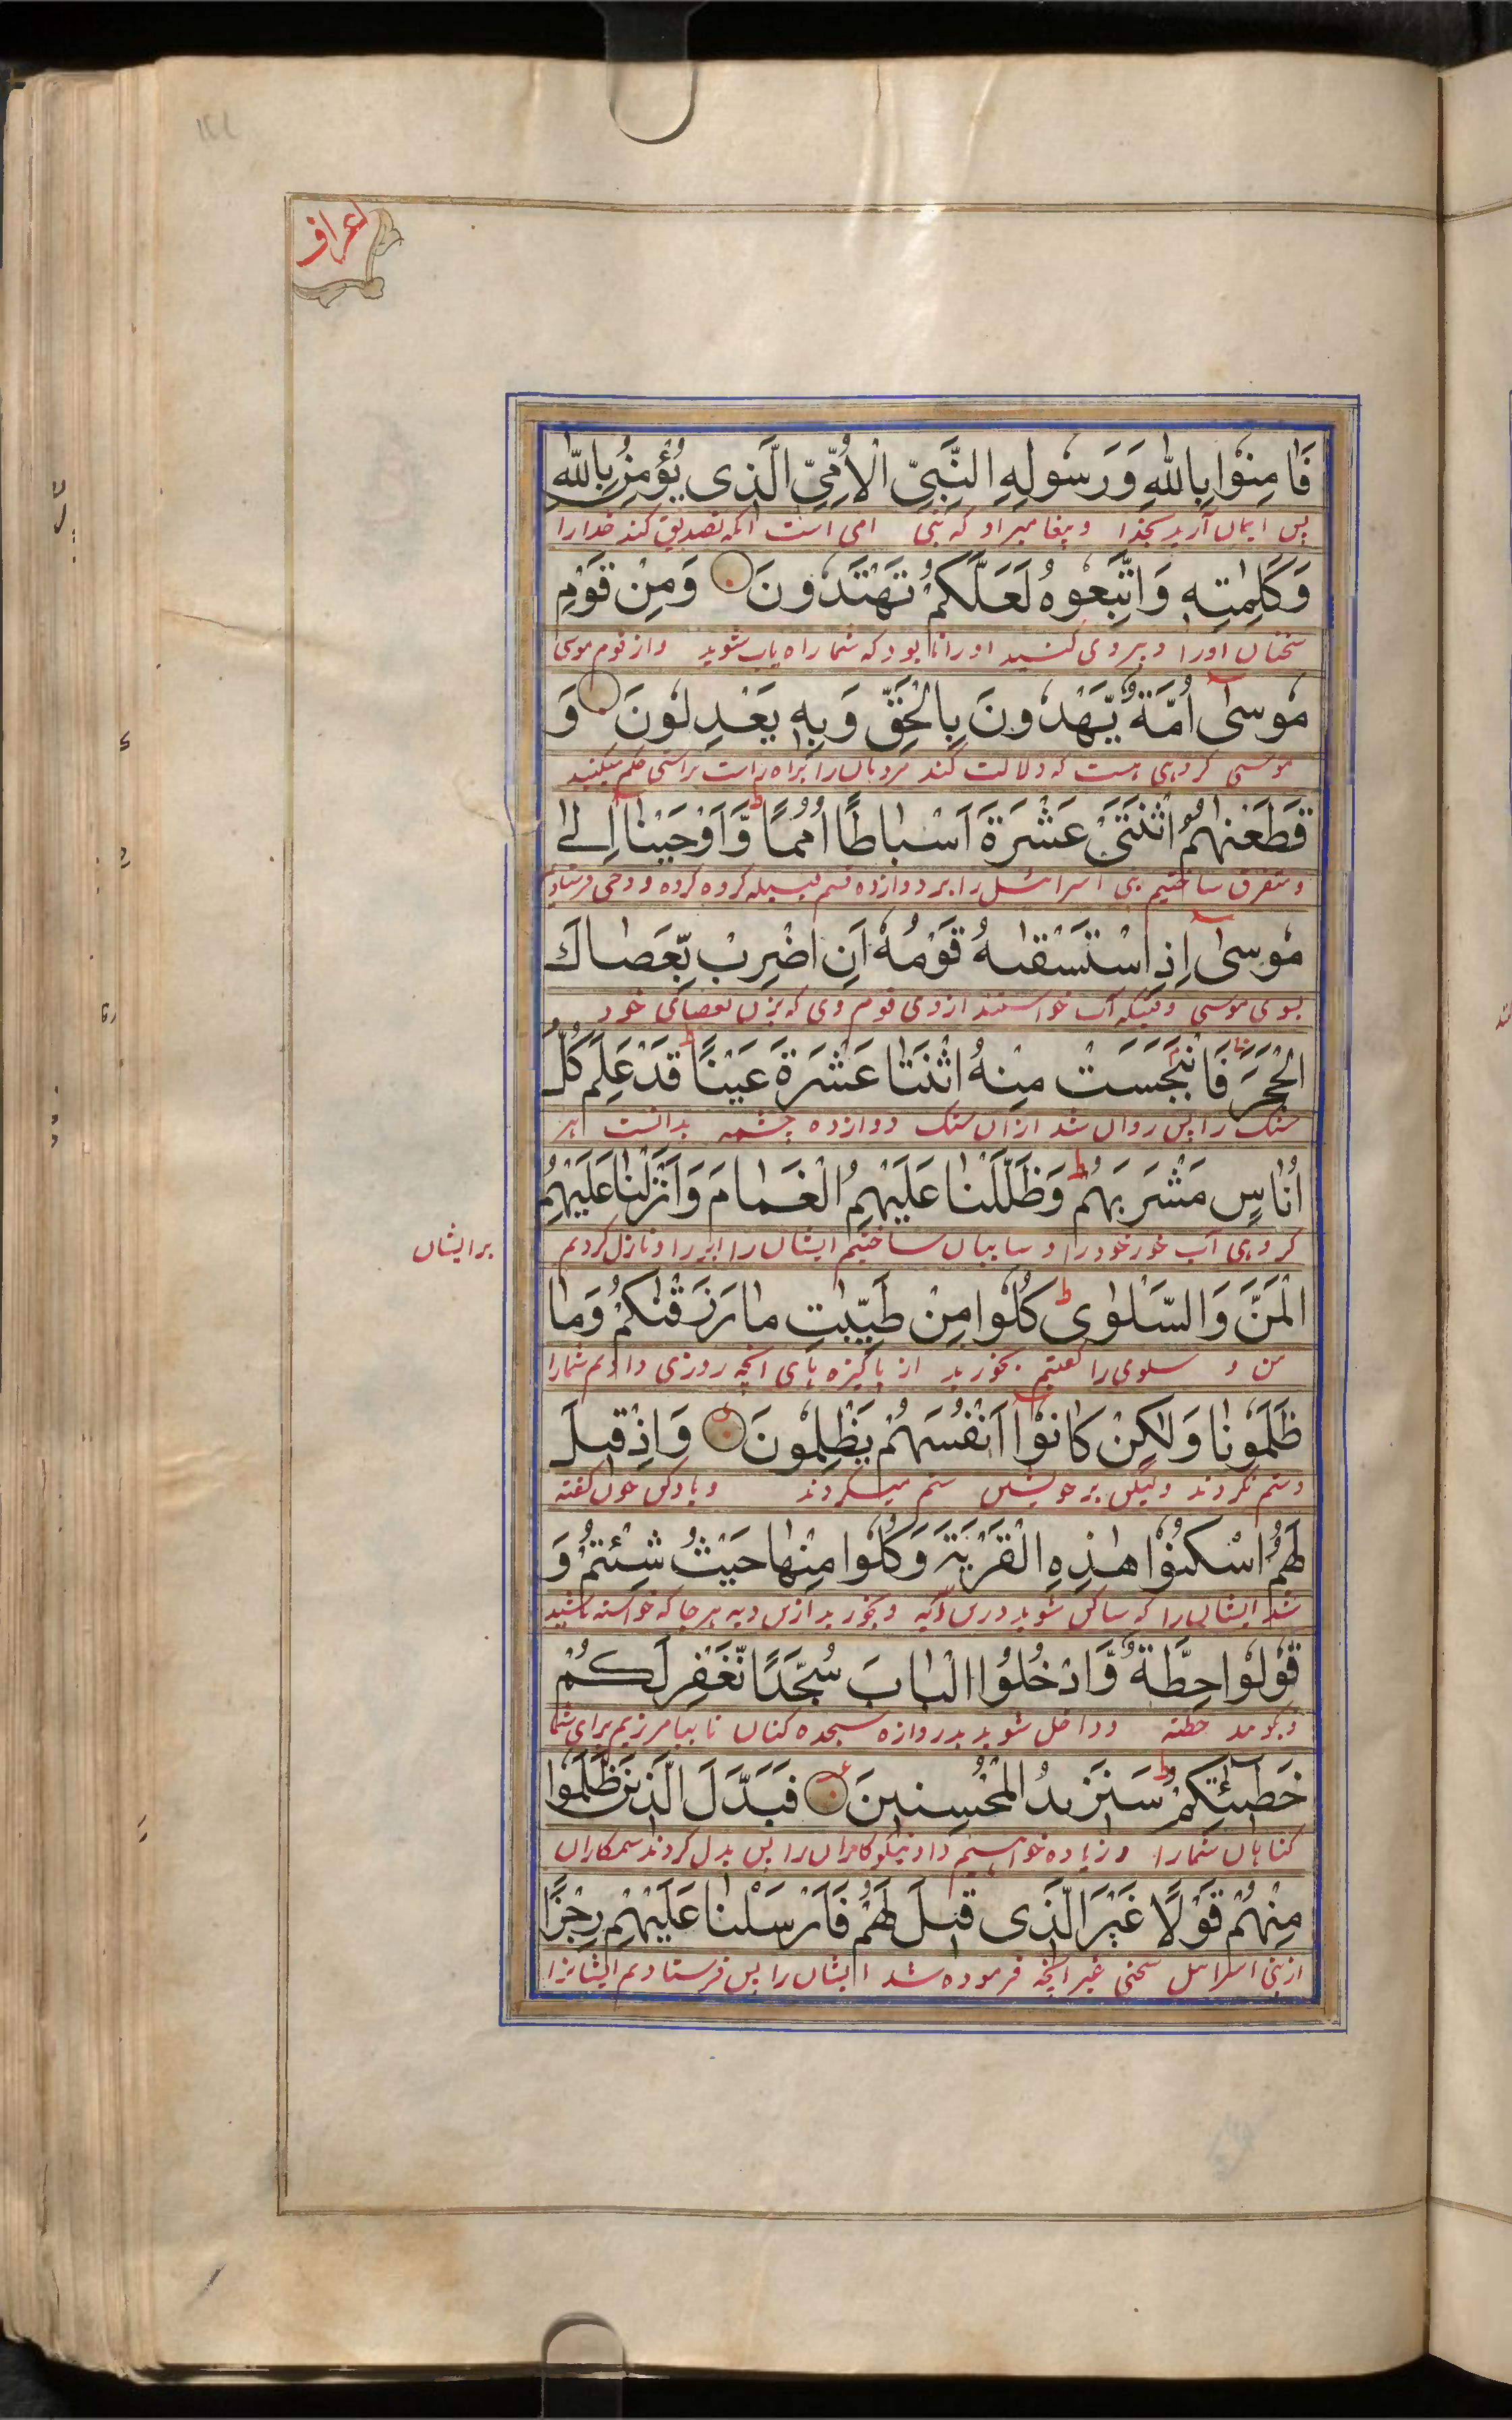 اعراف
فَاٰمِنُوْا بِاللّٰهِ وَرَسُولِهِ النَّبِيِّ الْاُمِّيِّ الَّذِى يُؤْمِنُ بِاللّٰهِ
پس ایمان آرید بخدا و پیغامبر او که نبی امی است آنکه تصدیق کند خدا را
وَكَلِمٰتِهٖ وَاتَّبِعُوهُ لَعَلَّكُمْ تَهْتَدُونَ وَمِنْ قَوْمِ
سخنان او را و پیروی کنید او را تا بود که شما راه یاب شوید و از قوم موسی
مُوسٰٓى اُمَّةٌ يَّهْدُونَ بِالْحَقِّ وَبِهٖ يَعْدِلُونَ وَ
موسی گروهی هست که دلالت کند مردمان را براه راست براستی حکم میکنند
قَطَّعْنٰهُمُ اثْنَتَىْ عَشْرَةَ اَسْبَاطًا اُمَمًا ط وَّاَوْحَيْنَآ اِلٰى
و متفرق ساختیم بنی اسرائیل را بر دوازده قسم قبیله گروه کرده و وحی فرستادیم
مُوسٰٓى اِذِ اسْتَسْقٰىهُ قَوْمُهٗٓ اَنِ اضْرِبْ بِّعَصَاكَ
بسوی موسی وقتیکه آب خواستند از وی قوم وی که بزن بعصای خود
الْحَجَرَ فَانْبَجَسَتْ مِنْهُ اثْنَتَا عَشْرَةَ عَيْنًا ط قَدْ عَلِمَ كُلُّ
سنک را پس روان شد از آن سنک دوازده چشمه بدانست هر
اُنَاسٍ مَشْرَبَهُمْ ط وَظَلَّلْنَا عَلَيْهِمُ الْغَمَامَ وَاَنْزَلْنَا عَلَيْهِمُ
گروهی آب خور خود را و سایبان ساختیم ایشان را ابر را و نازل کردیم
بر ایشان
الْمَنَّ وَالسَّلْوٰى ط كُلُوا مِنْ طَيِّبٰتِ مَا رَزَقْنٰكُمْ وَمَا
من و سلوی را گفتیم بخورید از پاکیزه های آنچه روزی دادیم شما را
ظَلَمُونَا وَلٰكِنْ كَانُوْٓا اَنْفُسَهُمْ يَظْلِمُونَ وَاِذْ قِيلَ
و ستم نکردند و لیکن بر خویشتن ستم میکردند و یاد کن چون گفته
لَهُمُ اسْكُنُوْا هٰذِهِ الْقَرْيَةَ وَكُلُوا مِنْهَا حَيْثُ شِئْتُمْ وَ
شد ایشان را که ساکن شوید درین دیه و بخورید ازین دیه هر جا که خواسته باشید
قُوْلُوْا حِطَّةٌ وَّادْخُلُوا الْبَابَ سُجَّدًا نَّغْفِرْ لَكُمْ
و بگویید حطته و داخل شوید بدروازه سجده کنان تا بیامرزیم برای شما
خَطِيٓئٰتِكُمْ ط سَنَزِيدُ الْمُحْسِنِينَ فَبَدَّلَ الَّذِينَ ظَلَمُوا
گناهان شما را و زیاده خواهیم داد نیکوکاران را پس بدل کردند ستمکاران
مِنْهُمْ قَوْلًا غَيْرَ الَّذِى قِيلَ لَهُمْ فَاَرْسَلْنَا عَلَيْهِمْ رِجْزًا
از بنی اسرائیل سخنی غیر آنچه فرموده شد ایشان را پس فرستادیم ایشانرا